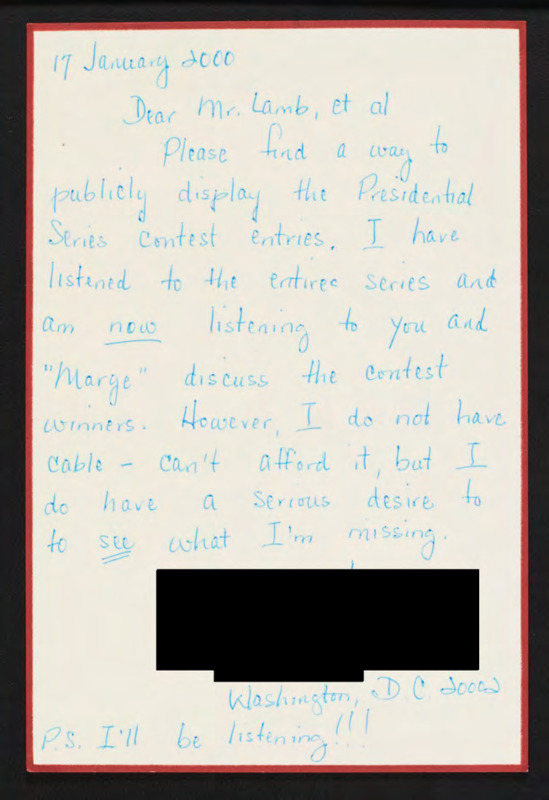 17 January 2000
Dear Mr. Lamb, et al
Please find a way to
publicly display the Presidential
Series contest entries. I have
listened to the entiree series and
am now listening to you and
"Marge" discuss the contest
winners. However, I do not have
cable – can't afford it, but I
do have a serious desire to
to see what I'm missing.
Washington, D.C. 20002
P.S. I'll be listening!!!